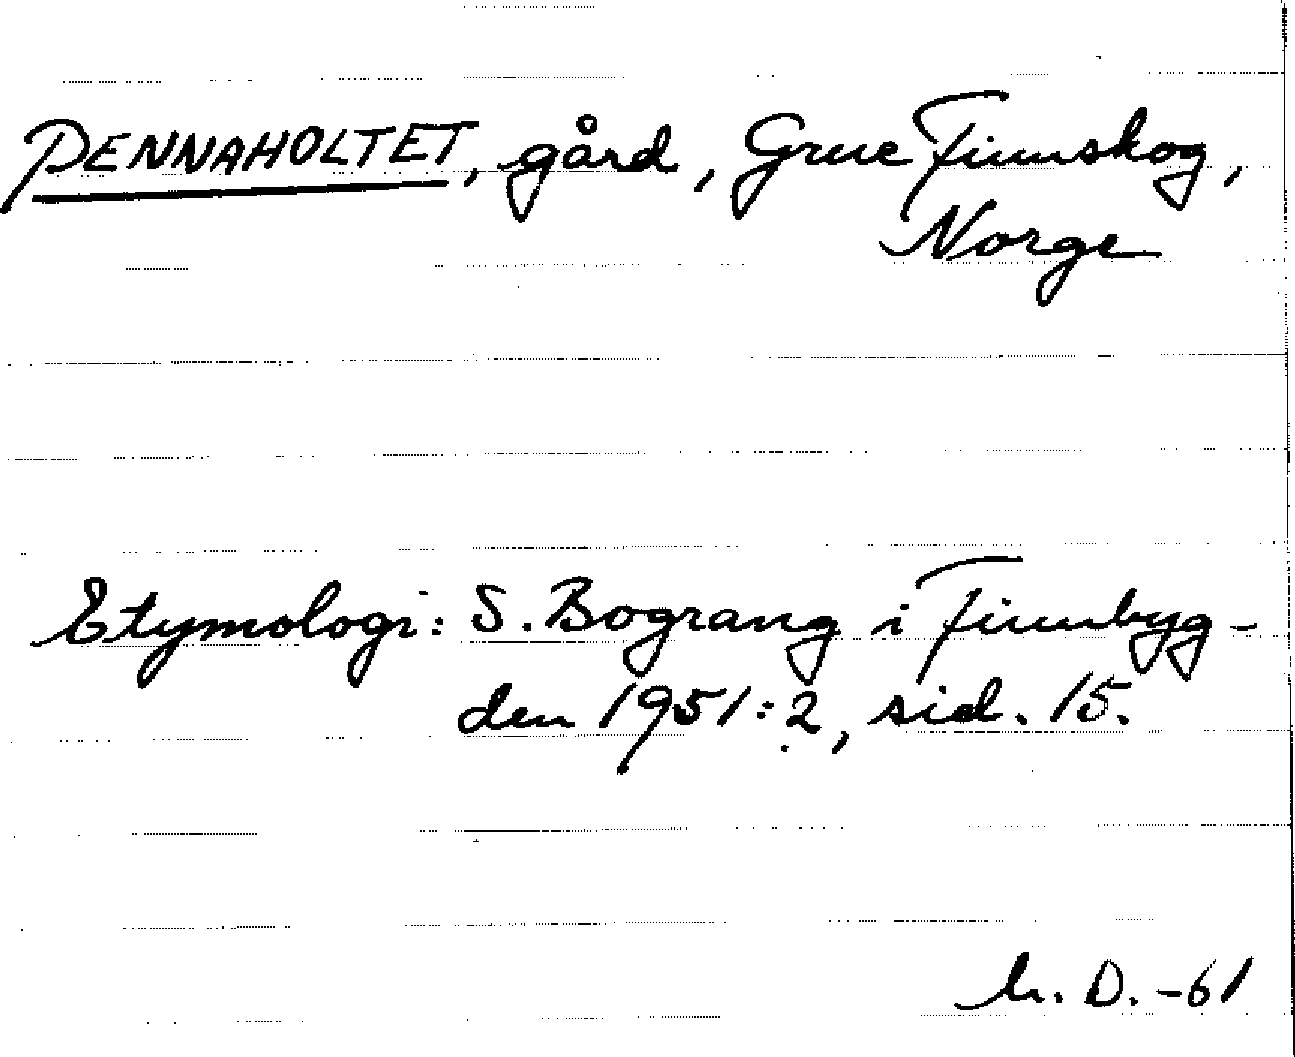 PENNAHOLTET, gård, Grue Finnskog,
Norge
Etymologi: S. Bograng i Finnbyg-
den 1951:2, sid. 15.
D. -61